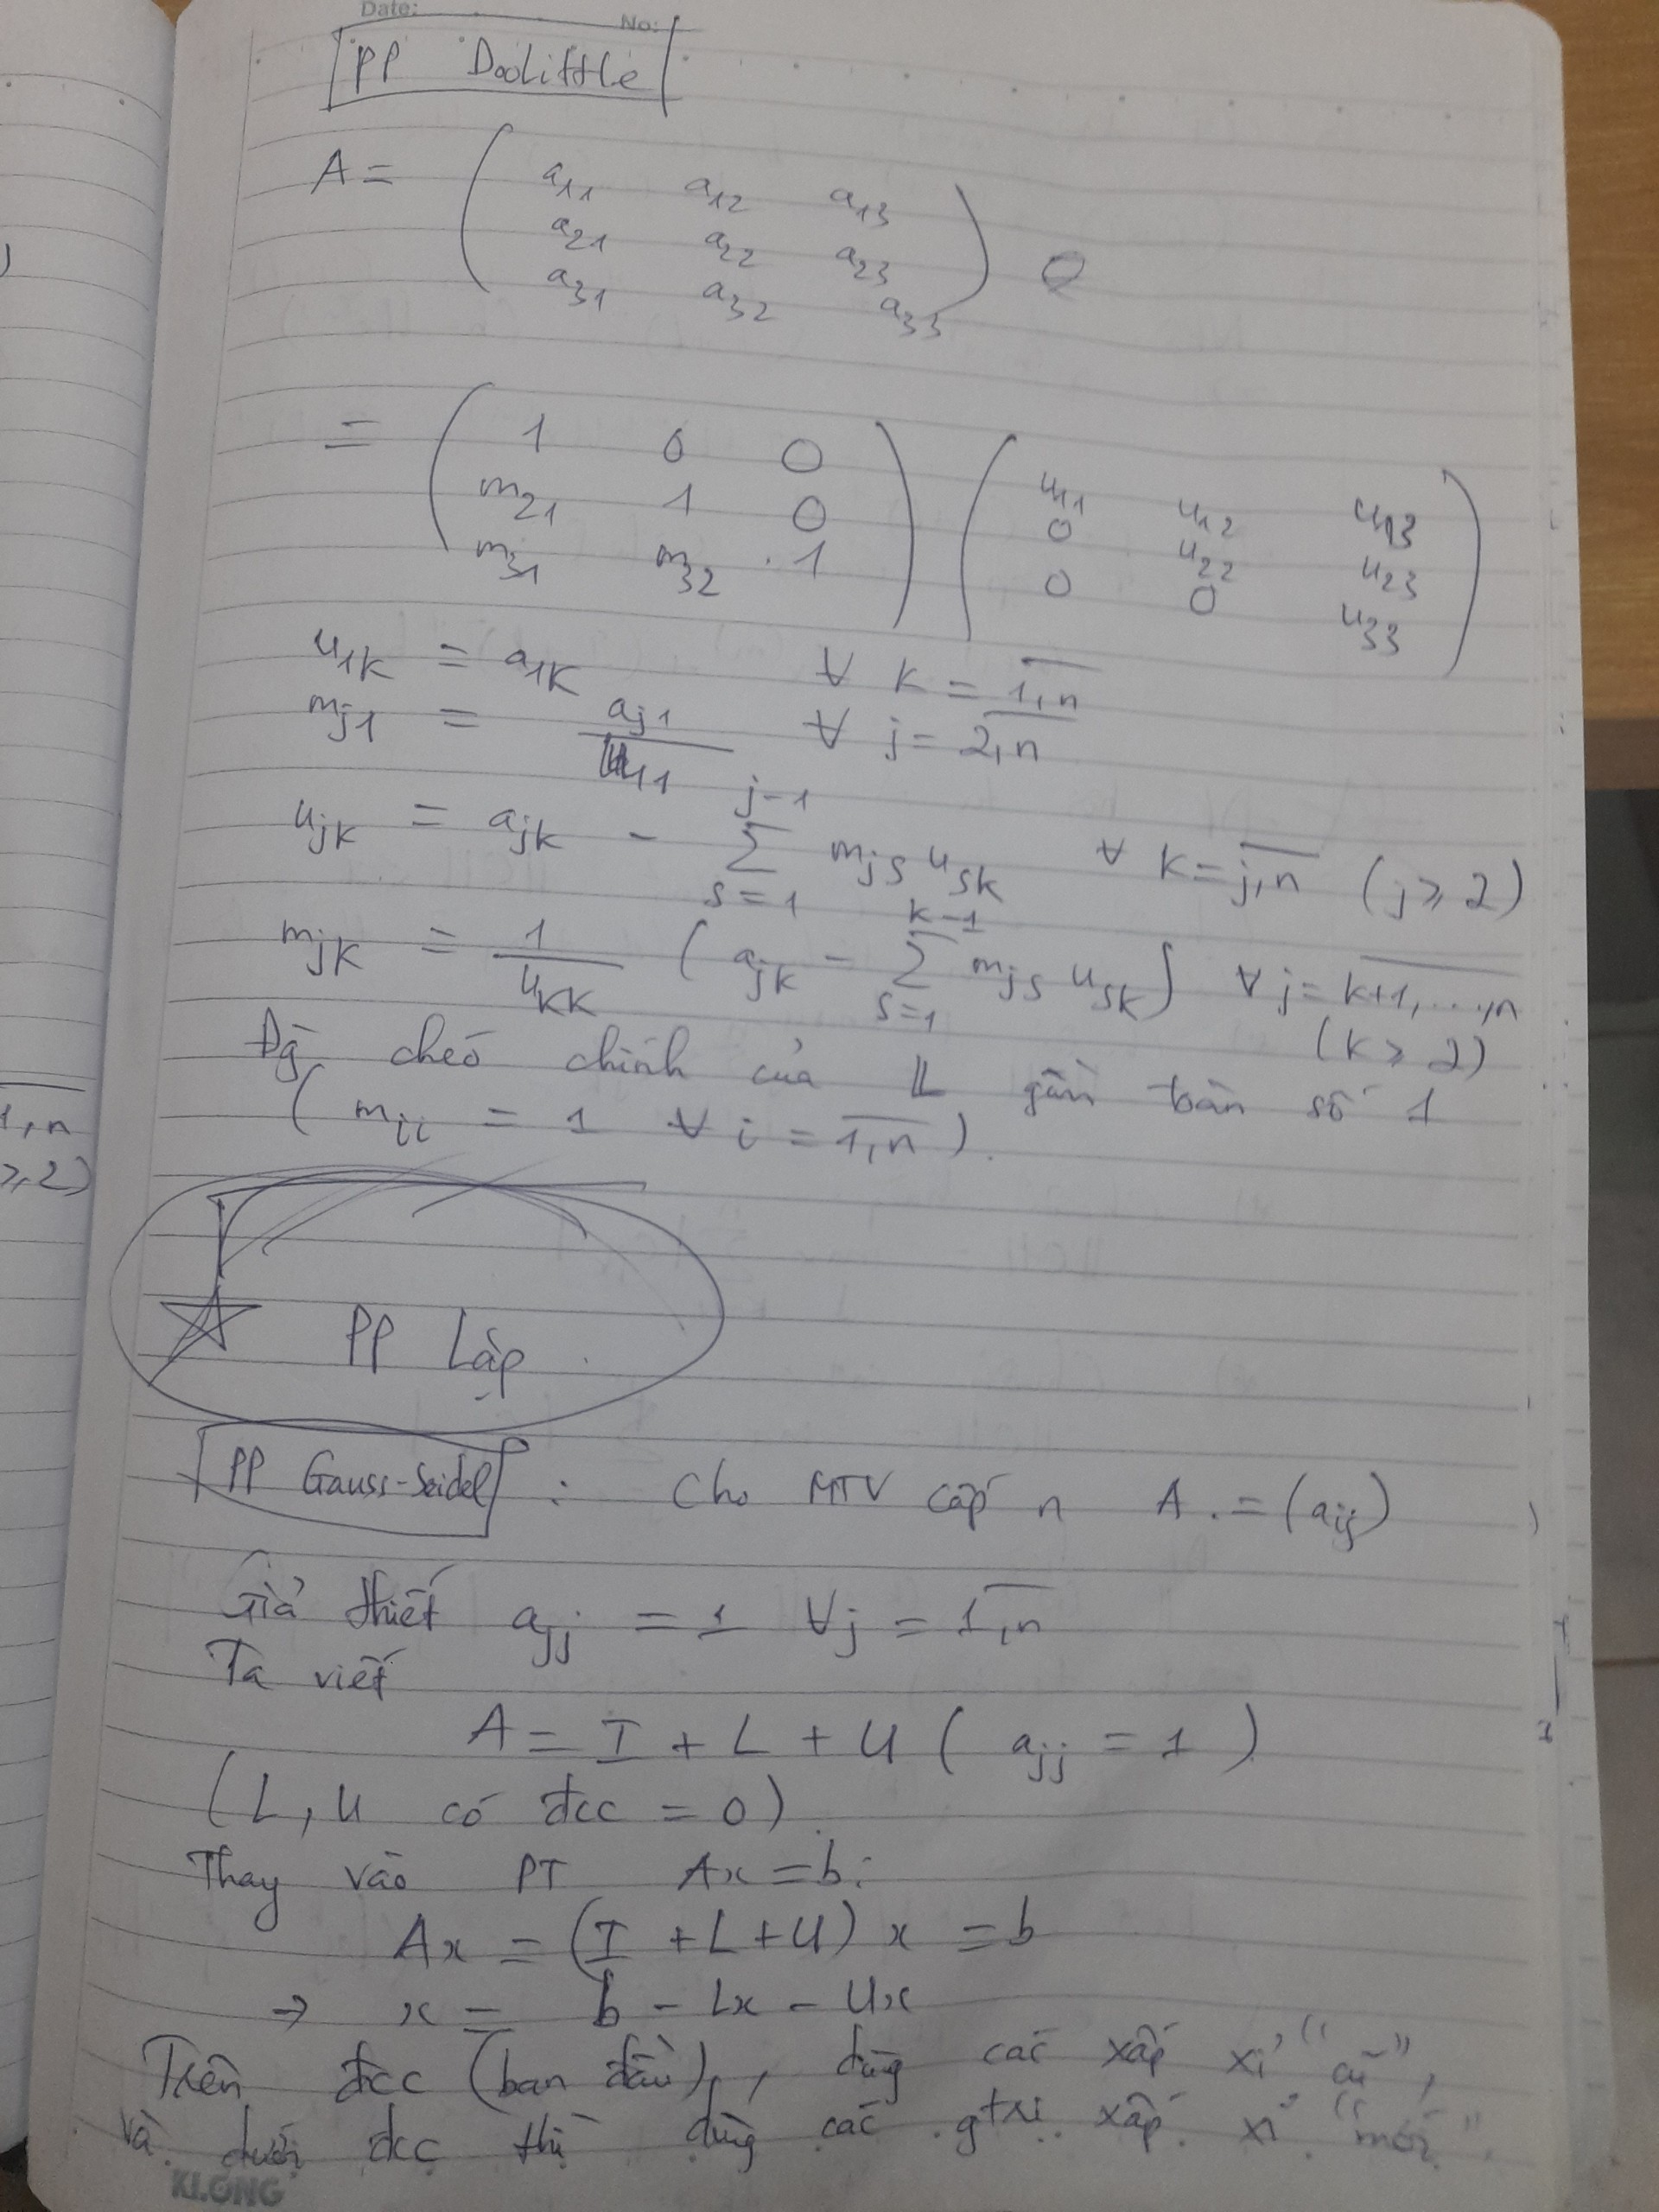 Date: No:
PP Doolittle
A = ( a11 a12 a13
a21 a22 a23
a31 a32 a33 )
= ( 1 0 0
m21 1 0
m31 m32 1 ) ( u11 u12 u13
0 u22 u23
0 0 u33 )
u1k = a1k ∀ k = 1,n
mj1 = aj1 / u11 ∀ j = 2,n
ujk = ajk - Σ_{s=1}^{j-1} mjs usk ∀ k = j,n (j ≥ 2)
mjk = 1/ukk ( ajk - Σ_{s=1}^{k-1} mjs usk ) ∀ j = k+1,...,n
(k ≥ 2)
Đg chéo chính của L gồm toàn số 1
( mii = 1 ∀ i = 1,n ).
1,n
≥ 2)
PP Lặp
PP Gauss-Seidel : Cho MTV cấp n A = (aij)
Giả thiết ajj = 1 ∀j = 1,n
Ta viết
A = I + L + U ( ajj = 1 )
(L, U có đcc = 0).
Thay vào PT Ax = b:
Ax = (I + L + U) x = b
→ x = b - Lx - Ux
Trên đcc (ban đầu), dùng các xấp xỉ "cũ",
và dưới đcc thì dùng các gtrị xấp xỉ "mới".
KLONG